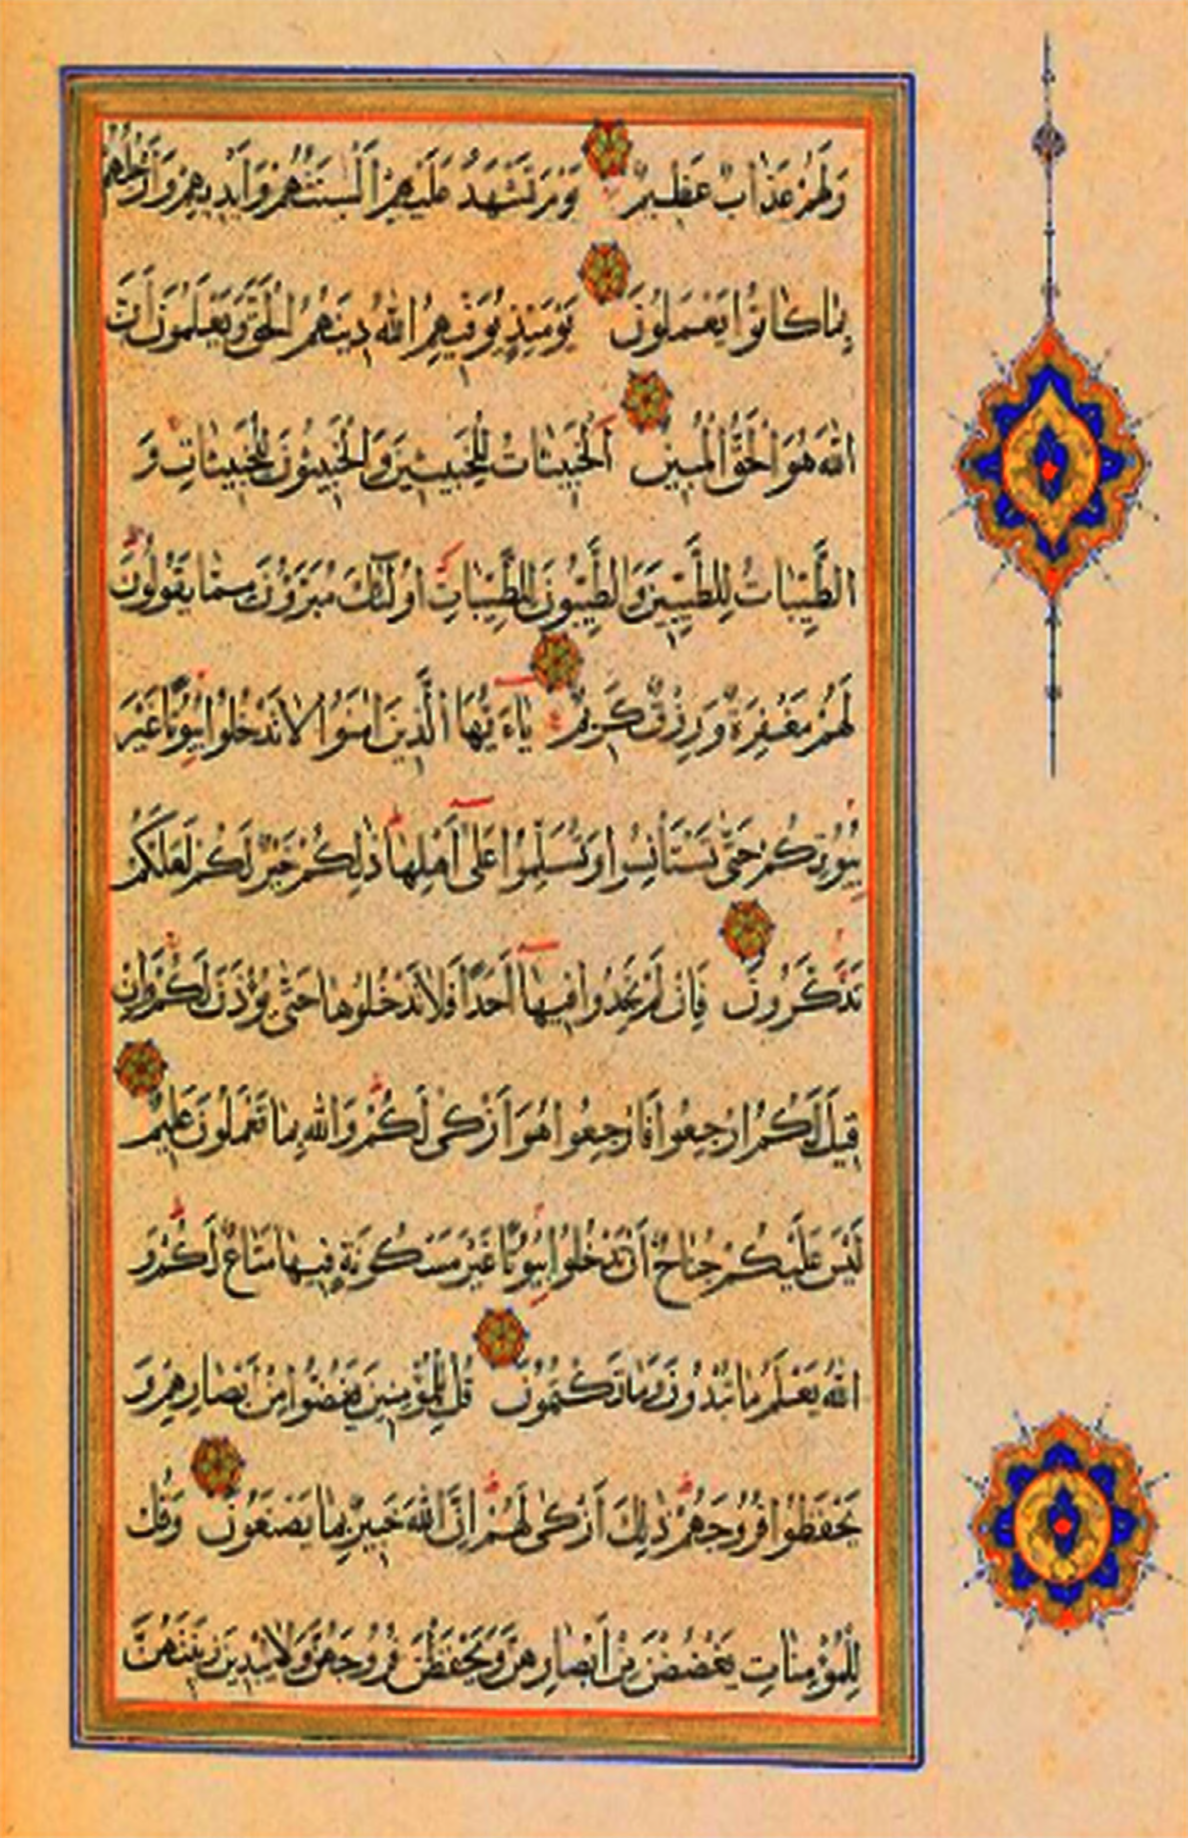 وَلَهُمْ عَذَابٌ عَظِيمٌ يَوْمَ تَشْهَدُ عَلَيْهِمْ اَلْسِنَتُهُمْ وَاَيْدِيهِمْ وَاَرْجُلُهُمْ
بِمَا كَانُوا يَعْمَلُونَ يَوْمَئِذٍ يُوَفِّيهِمُ اللّٰهُ دِينَهُمُ الْحَقَّ وَيَعْلَمُونَ اَنَّ
اللّٰهَ هُوَ الْحَقُّ الْمُبِينُ اَلْخَبِيثَاتُ لِلْخَبِيثِينَ وَالْخَبِيثُونَ لِلْخَبِيثَاتِ وَ
الطَّيِّبَاتُ لِلطَّيِّبِينَ وَالطَّيِّبُونَ لِلطَّيِّبَاتِ اُولٰٓئِكَ مُبَرَّؤُنَ مِمَّا يَقُولُونَ
لَهُمْ مَغْفِرَةٌ وَرِزْقٌ كَرِيمٌ يَاءَيُّهَا الَّذِينَ اٰمَنُوا لَا تَدْخُلُوا بُيُوتًا غَيْرَ
بُيُوتِكُمْ حَتّٰى تَسْتَاْنِسُوا وَتُسَلِّمُوا عَلٰى اَهْلِهَا ذٰلِكُمْ خَيْرٌ لَكُمْ لَعَلَّكُمْ
تَذَكَّرُونَ فَاِنْ لَمْ تَجِدُوا فِيهَا اَحَدًا فَلَا تَدْخُلُوهَا حَتّٰى يُؤْذَنَ لَكُمْ وَاِنْ
قِيلَ لَكُمُ ارْجِعُوا فَارْجِعُوا هُوَ اَزْكٰى لَكُمْ وَاللّٰهُ بِمَا تَعْمَلُونَ عَلِيمٌ
لَيْسَ عَلَيْكُمْ جُنَاحٌ اَنْ تَدْخُلُوا بُيُوتًا غَيْرَ مَسْكُونَةٍ فِيهَا مَتَاعٌ لَكُمْ وَ
اللّٰهُ يَعْلَمُ مَا تُبْدُونَ وَمَا تَكْتُمُونَ قُلْ لِلْمُؤْمِنِينَ يَغُضُّوا مِنْ اَبْصَارِهِمْ وَ
يَحْفَظُوا فُرُوجَهُمْ ذٰلِكَ اَزْكٰى لَهُمْ اِنَّ اللّٰهَ خَبِيرٌ بِمَا يَصْنَعُونَ وَقُلْ
لِلْمُؤْمِنَاتِ يَغْضُضْنَ مِنْ اَبْصَارِهِنَّ وَيَحْفَظْنَ فُرُوجَهُنَّ وَلَا يُبْدِينَ زِينَتَهُنَّ